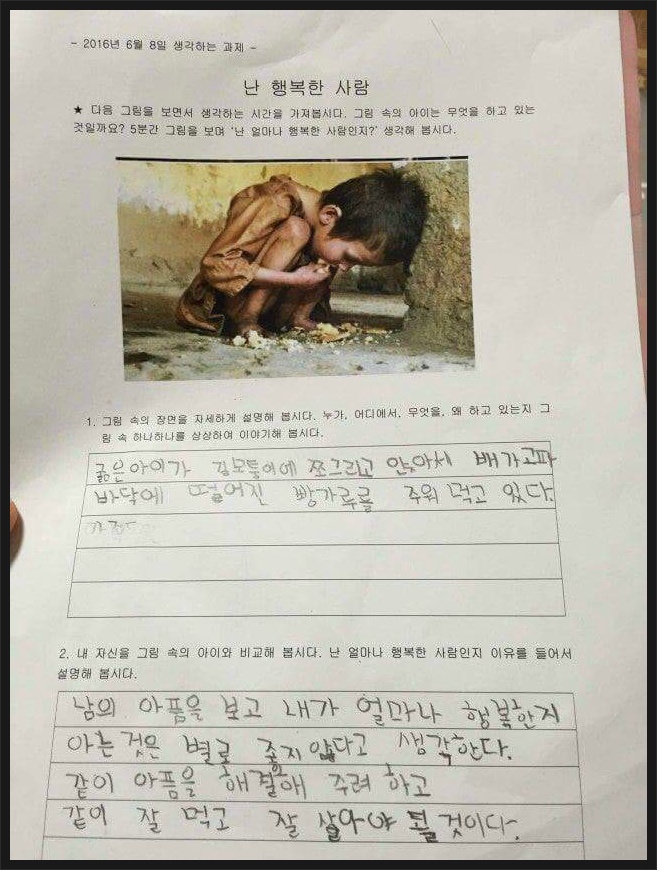 - 2016년 6월 8일 생각하는 과제 -
난 행복한 사람
★ 다음 그림을 보면서 생각하는 시간을 가져봅시다. 그림 속의 아이는 무엇을 하고 있는
것일까요? 5분간 그림을 보며 '난 얼마나 행복한 사람인지?' 생각해 봅시다.
1. 그림 속의 장면을 자세하게 설명해 봅시다. 누가, 어디에서, 무엇을, 왜 하고 있는지 그
림 속 하나하나를 상상하여 이야기해 봅시다.
굶은아이가 길모퉁이에 쪼그리고 앉아서 배가고파
바닥에 떨어진 빵가루를 주워 먹고 있다.
2. 내 자신을 그림 속의 아이와 비교해 봅시다. 난 얼마나 행복한 사람인지 이유를 들어서
설명해 봅시다.
남의 아픔을 보고 내가 얼마나 행복한지
아는 것은 별로 좋지 않다고 생각한다.
같이 아픔을 해결해 주려 하고
같이 잘 먹고 잘 살아야 될 것이다.